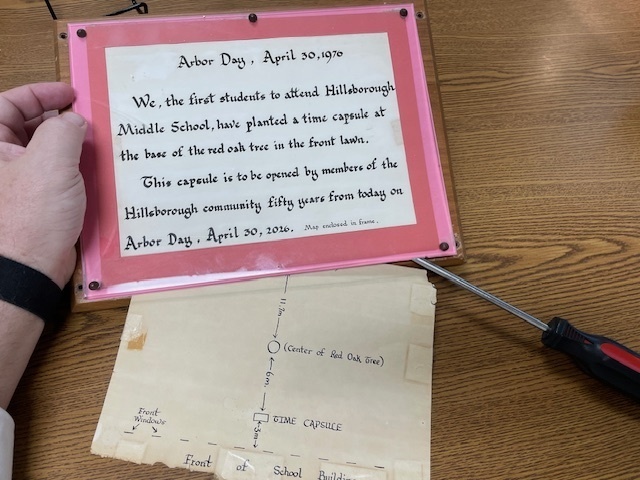 Arbor Day, April 30, 1976
We, the first students to attend Hillsborough
Middle School, have planted a time capsule at
the base of the red oak tree in the front lawn.
This capsule is to be opened by members of the
Hillsborough community fifty years from today on
Arbor Day, April 30, 2026. Map enclosed in frame.
(Center of Red Oak Tree)
6m.
TIME CAPSULE
3m
Front
Windows
Front of School Building